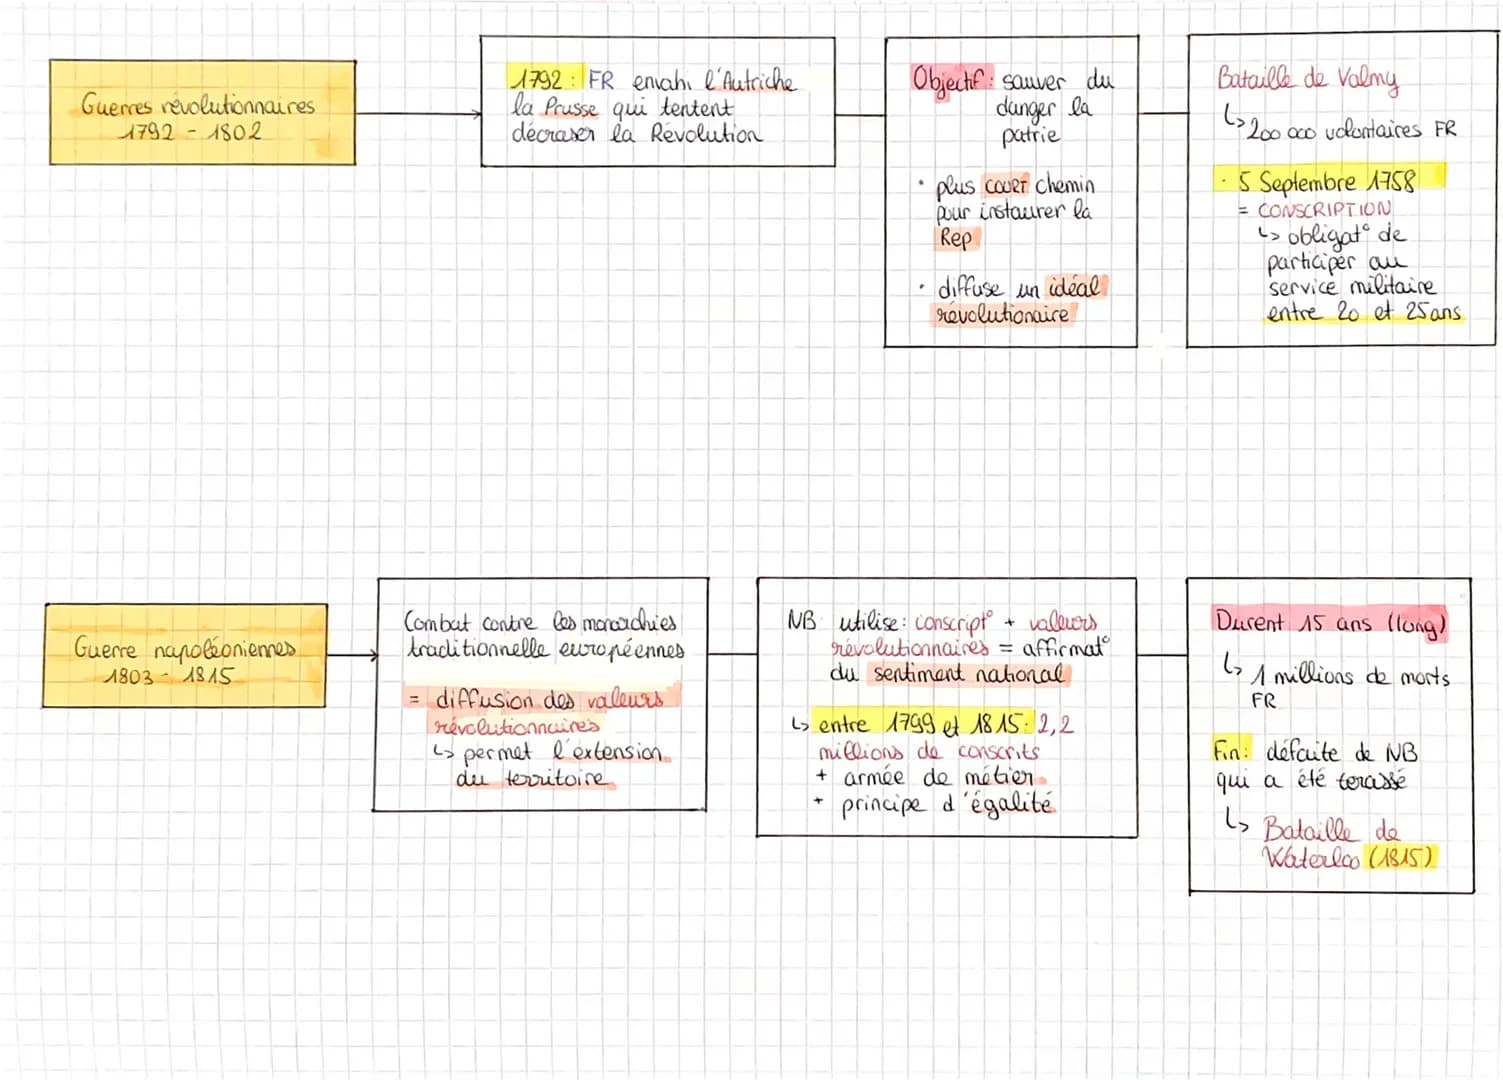 Guerres révolutionnaires
1792 - 1802
1792 : FR envahi l'Autriche
la Prusse qui tentent
décraser la Révolution
Objectif : sauver du
danger la
patrie
• plus COURT chemin
pour instaurer la
Rep
• diffuse un idéal
révolutionaire
Bataille de Valmy
↳ 200 000 volontaires FR
• 5 Septembre 1758
= CONSCRIPTION
↳ obligat° de
participer au
service militaire
entre 20 et 25 ans
Guerre napoléoniennes
1803 - 1815
Combat contre les monarchies
traditionnelle européennes
= diffusion des valeurs
révolutionnaires
↳ permet l'extension
du territoire
NB utilise : conscript° + valeurs
révolutionnaires = affirmat°
du sentiment national
↳ entre 1799 et 1815 : 2,2
millions de conscrits
+ armée de métier
+ principe d'égalité
Durent 15 ans (long)
↳ 1 millions de morts
FR
Fin : défaite de NB
qui a été terassé
↳ Bataille de
Waterloo (1815)